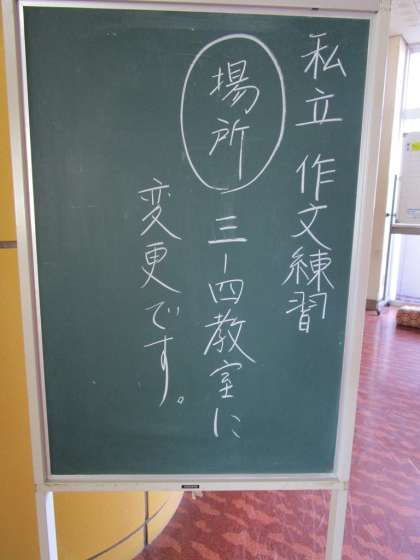 私立 作文練習
場所 三-四教室に
変更です。